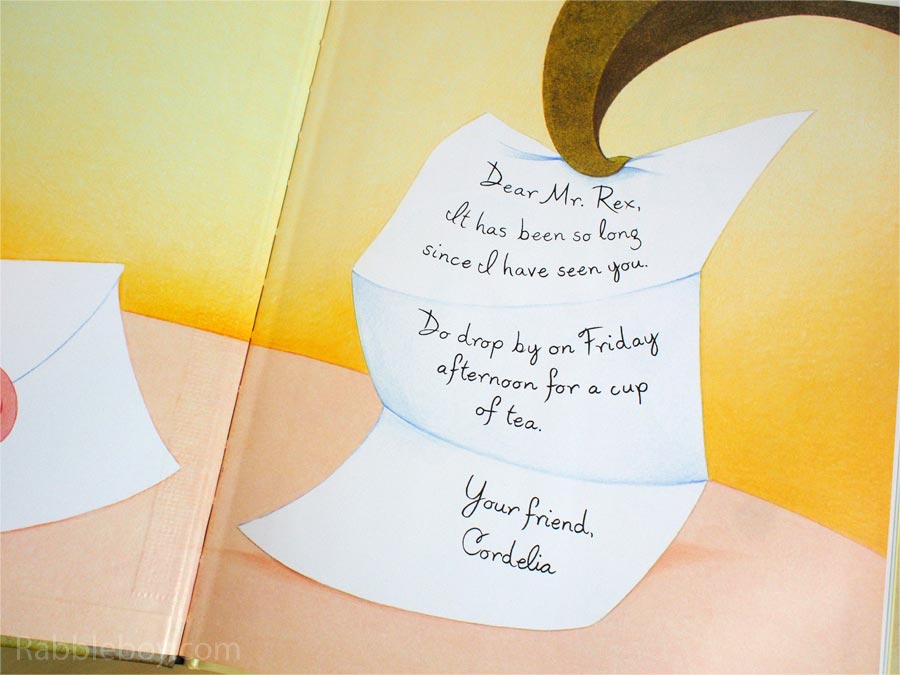 Dear Mr. Rex,
It has been so long
since I have seen you.
Do drop by on Friday
afternoon for a cup
of tea.
Your friend,
Cordelia
Rabbleboy.com